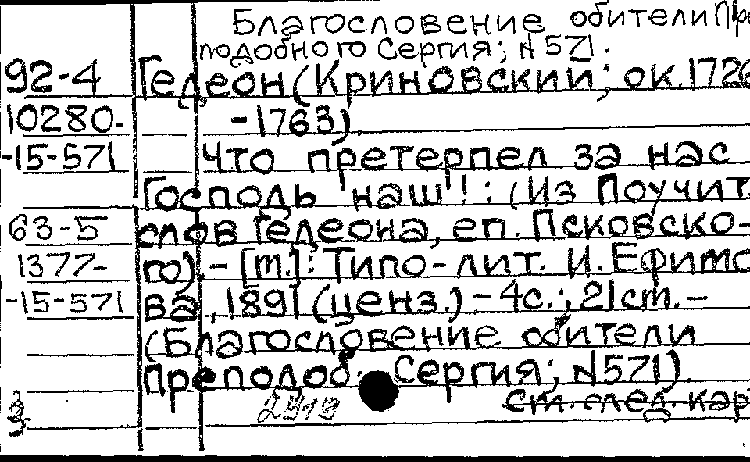 Благословение обители Пре
подобного Сергия; N 571.
92-4 Гедеон (Криновский; ок. 1726
10280- -1763).
-15-571 Что претерпел за нас
Господь наш!: (Из Поучит.
63-5 слов Гедеона, еп. Псковско-
1377- го). - [М.]: Типо-лит. И. Ефимо
-15-571 ва, 1891 (ценз.) - 4с.; 21см. -
(Благословение обители
Преподоб. Сергия; N571).
2919 см. след. кар